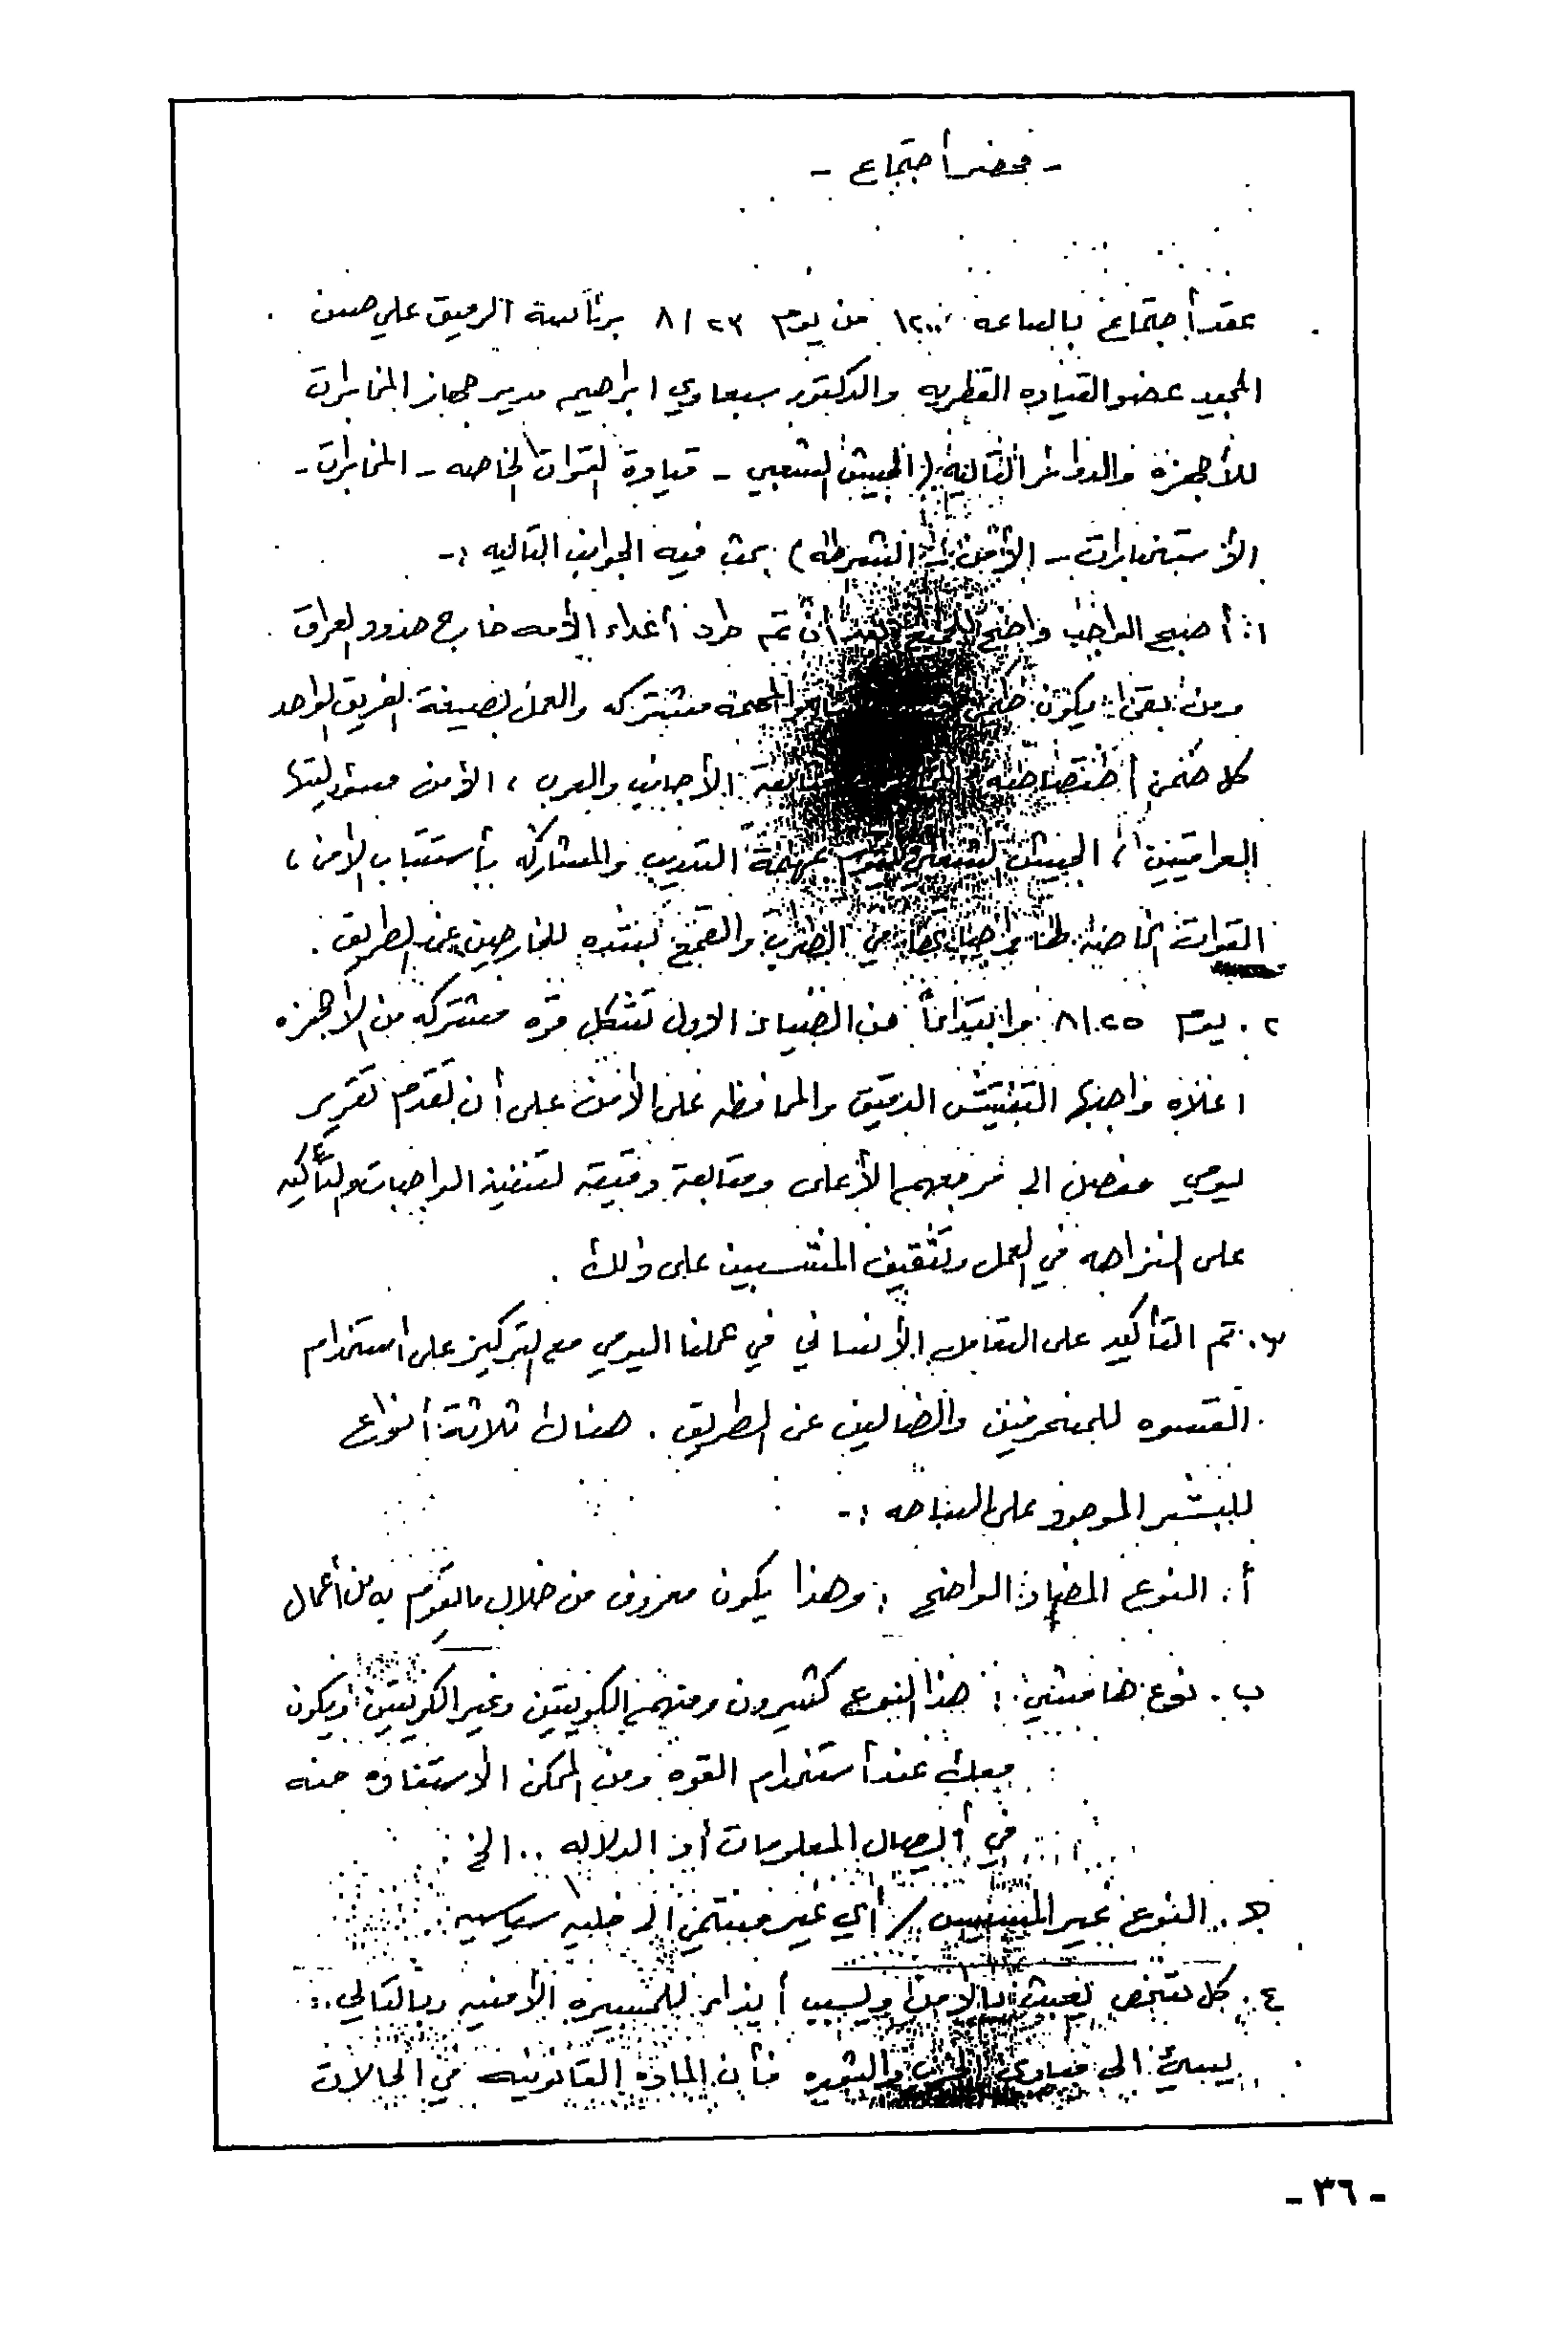 - محضر أجتماع -
عقد أجتماع بالساعه ١٢٠٠ من يوم ٨/٢٣ برئآسة الرفيق علي حسن
المجيد عضو القياده القطريه والدكتور سبعاوي ابراهيم مدير جهاز المخابرات
للأجهزة والدوائر التالية (الجيش الشعبي - قيادة القوات الخاصه - المخابرات -
الأستخبارات - الأمن - الشرطه) بحث فيه الجوانب التاليه :-
١. أصبح الواجب واضح للجميع بعد أن تم طرد أعداء الأمه خارج حدود العراق
ومن بقى يكون والمهمة مشتركه والعمل بصيغة الفريق الواحد
كل ضمن أختصاصه الأجانب والعرب ، الأمن مسؤوليتها
العراقيين ، الجيش الشعبي يقوم بمهمة التدريب والمشاركه بأستتباب الأمن ،
القوات الخاصه لها واجباتها في الضرب والقمع بشده للخارجين عن الطريق .
٢. يوم ٨/٢٥ وابتداءاً من الضياء الاول تشكل قوه مشتركه من الأجهزه
اعلاه واجبها التفتيش الدقيق والمحافظه على الأمن على أن تقدم تقرير
يومي مفصل الى مرجعهم الأعلى ومتابعة دقيقه لتنفيذ الواجبات والتأكيد
على النزاهه في العمل وتثقيف المنتسبين على ذلك .
٣. تم التأكيد على التعامل الأنساني في عملنا اليومي مع التركيز على استخدام
القسوه للمنحرفين والضالين عن الطريق . هناك ثلاثة أنواع
للبشر الموجود على الساحه :-
أ. النوع المضاد الواضح : وهذا يكون معروف من خلال مايقوم به من أعمال
ب. نوع هامشي : هذا النوع كثيرون ومنهم الكويتين وغير الكويتين ويكون
معك عند أستخدام القوه ومن الممكن الأستفاده منه
في أيصال المعلومات أو الدلاله .. الخ
جـ. النوع غير المسيس / أي غير منتمي الى خليه سياسيه
٤. كل شخص يعبث بالأمن ويسبب أيذاء للمسيره الأمنيه وبالتالي
يسيئ الى مبادئ الحزب والثوره فأن الماده القانونيه في الحالات
- ٣٦ -